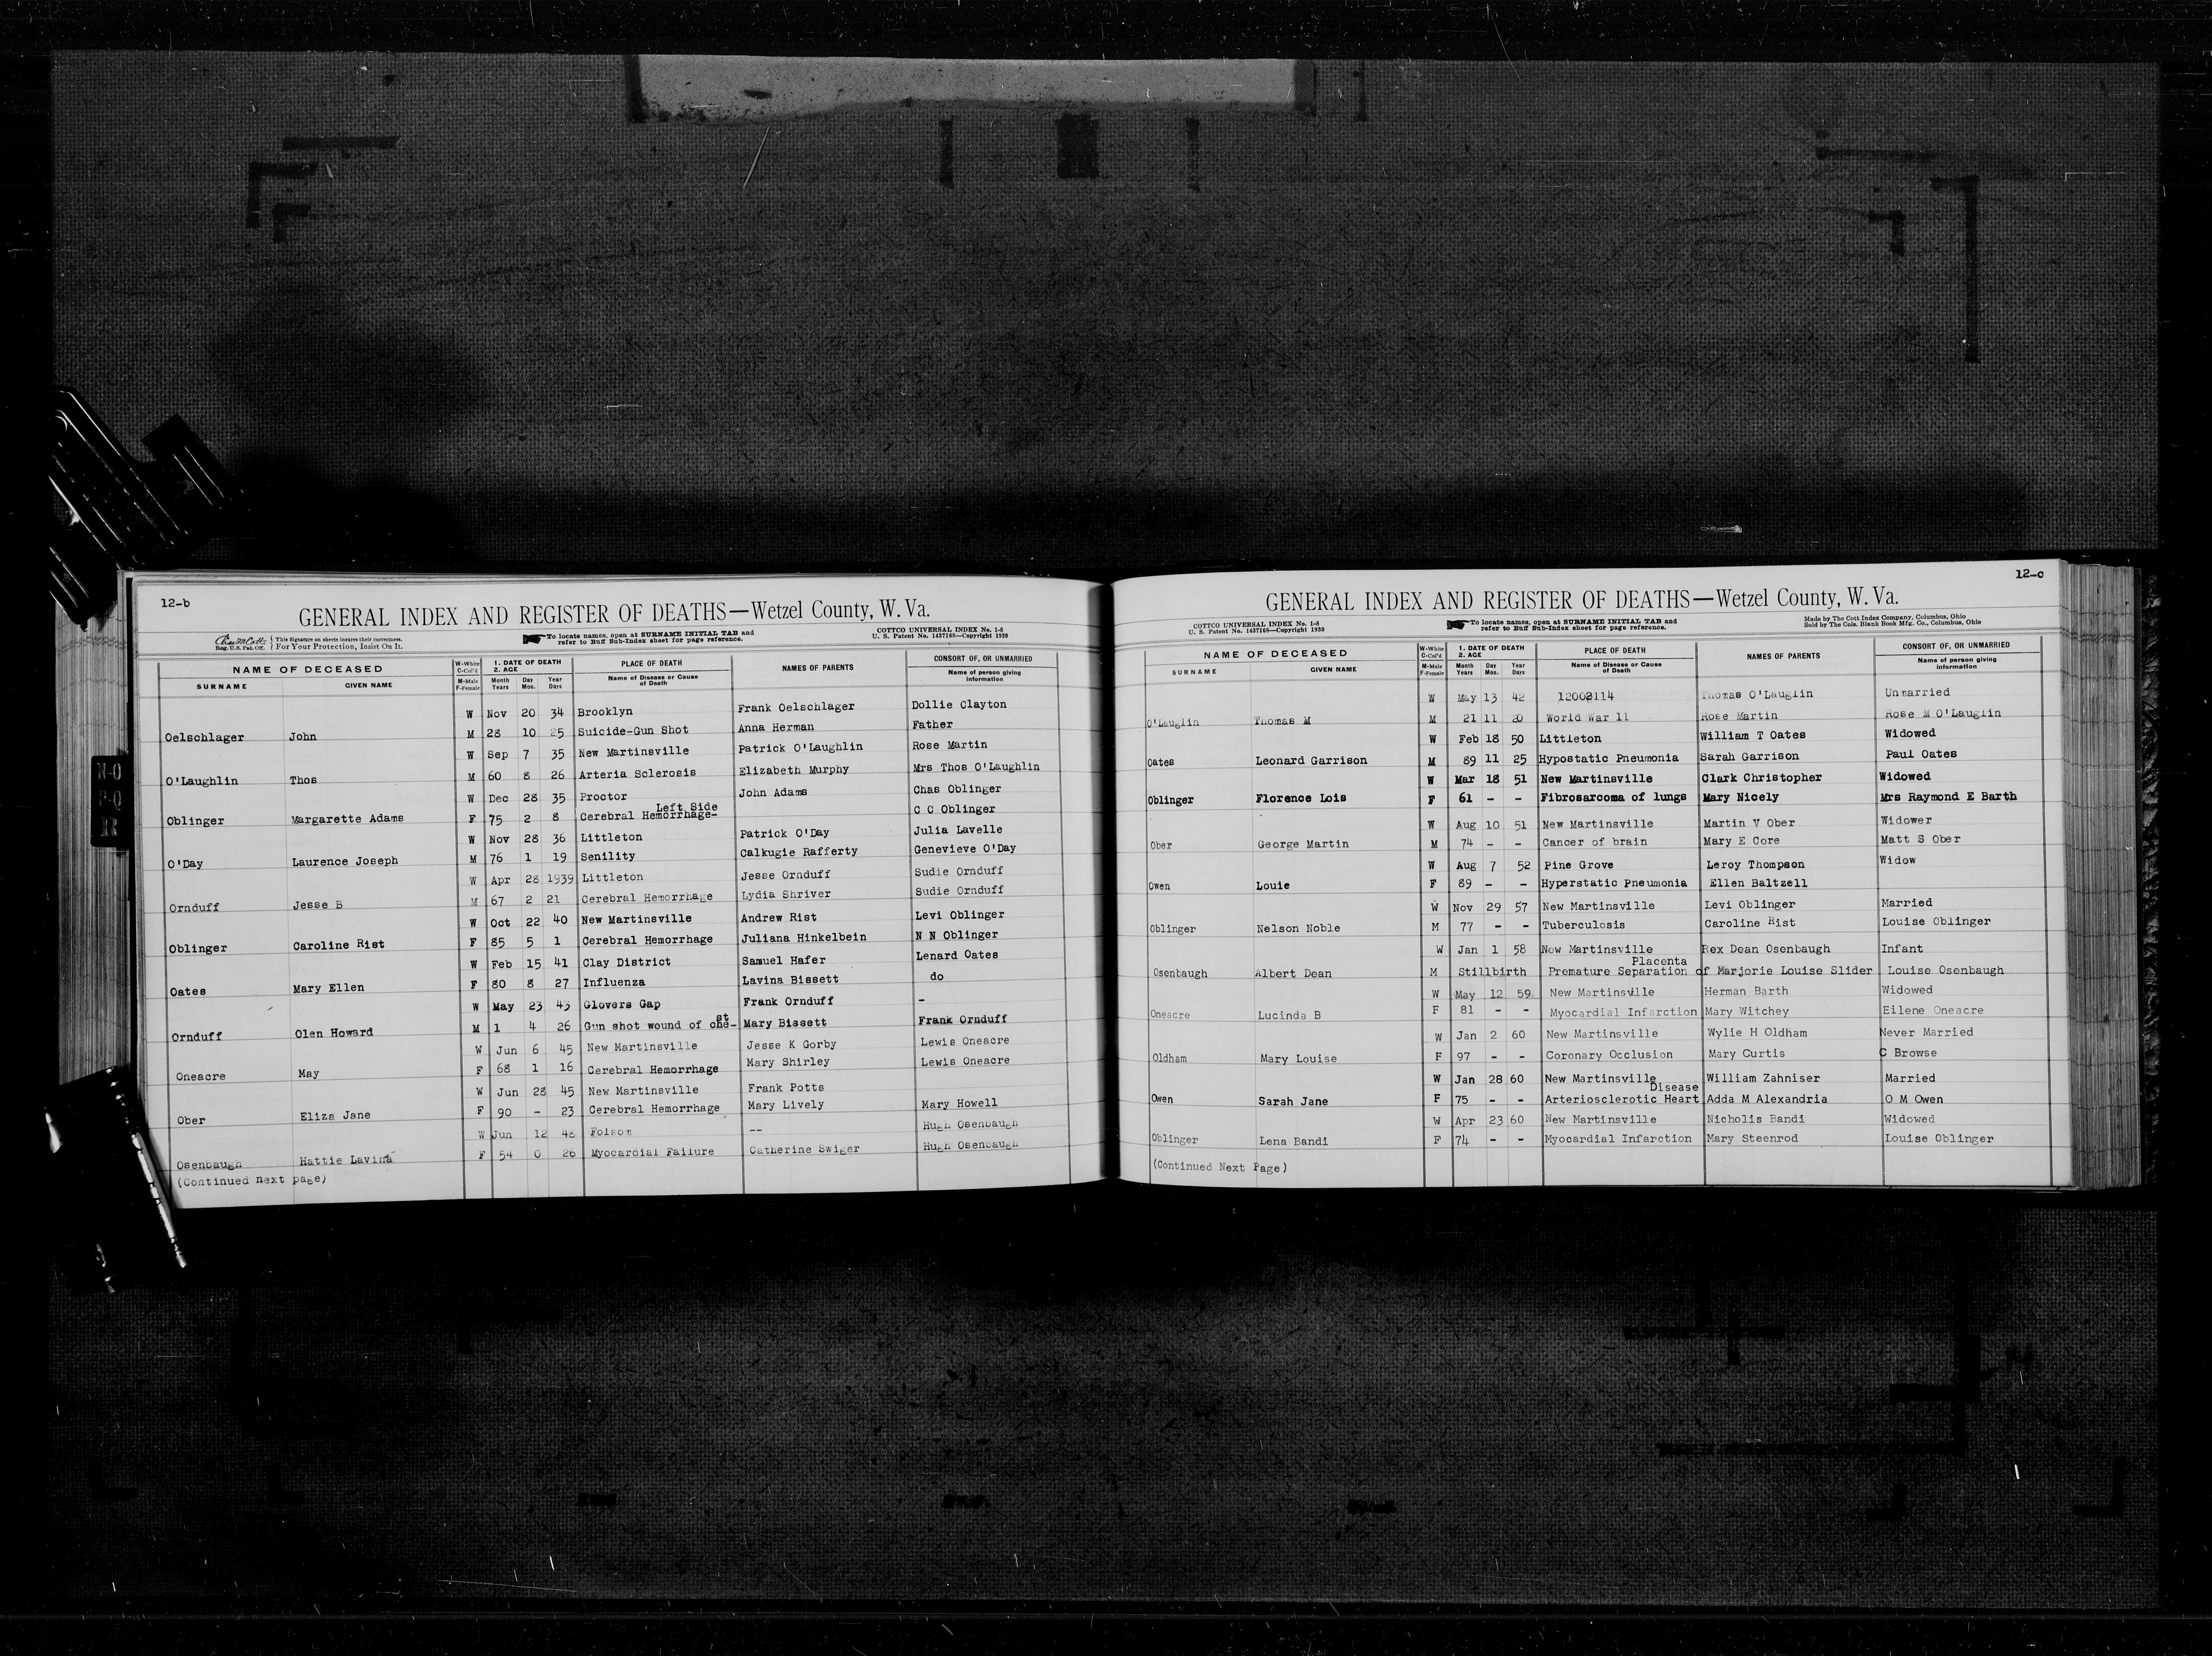 12-b
GENERAL INDEX AND REGISTER OF DEATHS—Wetzel County, W. Va.
Reg. U.S. Pat. Off. { This Signature on sheets insures their correctness. For Your Protection, Insist On It.
To locate names, open at SURNAME INITIAL TAB and refer to Buff Sub-Index sheet for page reference.
COTTCO UNIVERSAL INDEX No. 1-8
U. S. Patent No. 1437168—Copyright 1930
NAME OF DECEASED W-White C-Col'd 1. DATE OF DEATH 2. AGE PLACE OF DEATH NAMES OF PARENTS CONSORT OF, OR UNMARRIED
SURNAME GIVEN NAME M-Male F-Female Month Years Day Mos. Year Days Name of Disease or Cause of Death Name of person giving information
W Nov 20 34 Brooklyn Frank Oelschlager Dollie Clayton
Oelschlager John M 28 10 25 Suicide-Gun Shot Anna Herman Father
W Sep 7 35 New Martinsville Patrick O'Laughlin Rose Martin
O'Laughlin Thos M 60 8 26 Arteria Sclerosis Elizabeth Murphy Mrs Thos O'Laughlin
W Dec 28 35 Proctor John Adams Chas Oblinger
Left Side
Oblinger Margarette Adams F 75 2 8 Cerebral Hemorrhage- C C Oblinger
W Nov 28 36 Littleton Patrick O'Day Julia Lavelle
O'Day Laurence Joseph M 76 1 19 Senility Calkugie Rafferty Genevieve O'Day
W Apr 28 1939 Littleton Jesse Ornduff Sudie Ornduff
Ornduff Jesse B M 67 2 21 Cerebral Hemorrhage Lydia Shriver Sudie Ornduff
W Oct 22 40 New Martinsville Andrew Rist Levi Oblinger
Oblinger Caroline Rist F 85 5 1 Cerebral Hemorrhage Juliana Hinkelbein N N Oblinger
W Feb 15 41 Clay District Samuel Hafer Lenard Oates
Oates Mary Ellen F 80 8 27 Influenza Lavina Bissett do
W May 23 43 Glovers Gap Frank Ornduff -
st
Ornduff Olen Howard M 1 4 26 Gun shot wound of che- Mary Bissett Frank Ornduff
W Jun 6 45 New Martinsville Jesse K Gorby Lewis Oneacre
Oneacre May F 68 1 16 Cerebral Hemorrhage Mary Shirley Lewis Oneacre
W Jun 28 45 New Martinsville Frank Potts
Ober Eliza Jane F 90 - 23 Cerebral Hemorrhage Mary Lively Mary Howell
W Jun 12 48 Folsom -- Hugh Osenbaugh
Osenbaugh Hattie Lavina F 54 0 26 Myocardial Failure Catherine Swiger Hugh Osenbaugh
(Continued next page)
N-O
P-Q
R
12-c
GENERAL INDEX AND REGISTER OF DEATHS—Wetzel County, W. Va.
COTTCO UNIVERSAL INDEX No. 1-8
U. S. Patent No. 1437168—Copyright 1930
To locate names, open at SURNAME INITIAL TAB and refer to Buff Sub-Index sheet for page reference.
Made by The Cott Index Company, Columbus, Ohio
Sold by The Cols. Blank Book Mfg. Co., Columbus, Ohio
NAME OF DECEASED W-White C-Col'd 1. DATE OF DEATH 2. AGE PLACE OF DEATH NAMES OF PARENTS CONSORT OF, OR UNMARRIED
SURNAME GIVEN NAME M-Male F-Female Month Years Day Mos. Year Days Name of Disease or Cause of Death Name of person giving information
W May 13 42 12002114 Thomas O'Lauglin Unmarried
O'Lauglin Thomas M M 21 11 20 World War 11 Rose Martin Rose M O'Lauglin
W Feb 18 50 Littleton William T Oates Widowed
Oates Leonard Garrison M 89 11 25 Hypostatic Pneumonia Sarah Garrison Paul Oates
W Mar 18 51 New Martinsville Clark Christopher Widowed
Oblinger Florence Lois F 61 - - Fibrosarcoma of lungs Mary Nicely Mrs Raymond E Barth
W Aug 10 51 New Martinsville Martin V Ober Widower
Ober George Martin M 74 - - Cancer of brain Mary E Core Matt S Ober
W Aug 7 52 Pine Grove Leroy Thompson Widow
Owen Louie F 89 - - Hyperstatic Pneumonia Ellen Baltzell
W Nov 29 57 New Martinsville Levi Oblinger Married
Oblinger Nelson Noble M 77 - - Tuberculosis Caroline Rist Louise Oblinger
W Jan 1 58 New Martinsville Rex Dean Osenbaugh Infant
Placenta
Osenbaugh Albert Dean M Stillbirth Premature Separation of Marjorie Louise Slider Louise Osenbaugh
W May 12 59 New Martinsville Herman Barth Widowed
Oneacre Lucinda B F 81 - - Myocardial Infarction Mary Witchey Eilene Oneacre
W Jan 2 60 New Martinsville Wylie H Oldham Never Married
Oldham Mary Louise F 97 - - Coronary Occlusion Mary Curtis C Browse
W Jan 28 60 New Martinsville William Zahniser Married
Disease
Owen Sarah Jane F 75 - - Arteriosclerotic Heart Adda M Alexandria O M Owen
W Apr 23 60 New Martinsville Nicholis Bandi Widowed
Oblinger Lena Bandi F 74 - - Myocardial Infarction Mary Steenrod Louise Oblinger
(Continued Next Page)